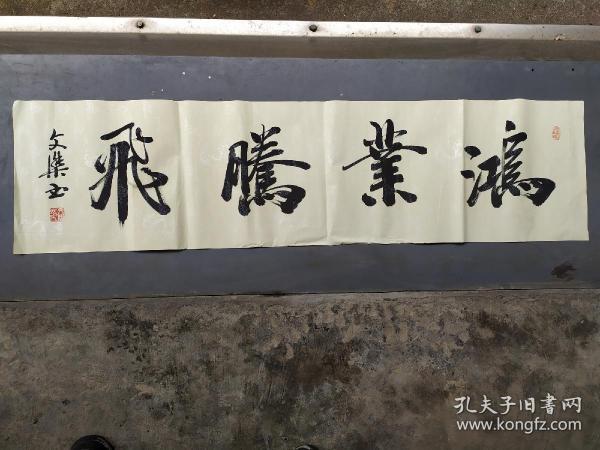 鴻業騰飛
文傑书
孔夫子旧書网
www.kongfz.com